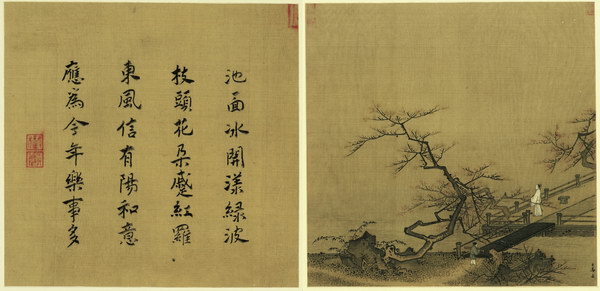 池面冰開漾綠波
枝頭花朵蹙紅羅
東風信有陽和意
應為今年樂事多